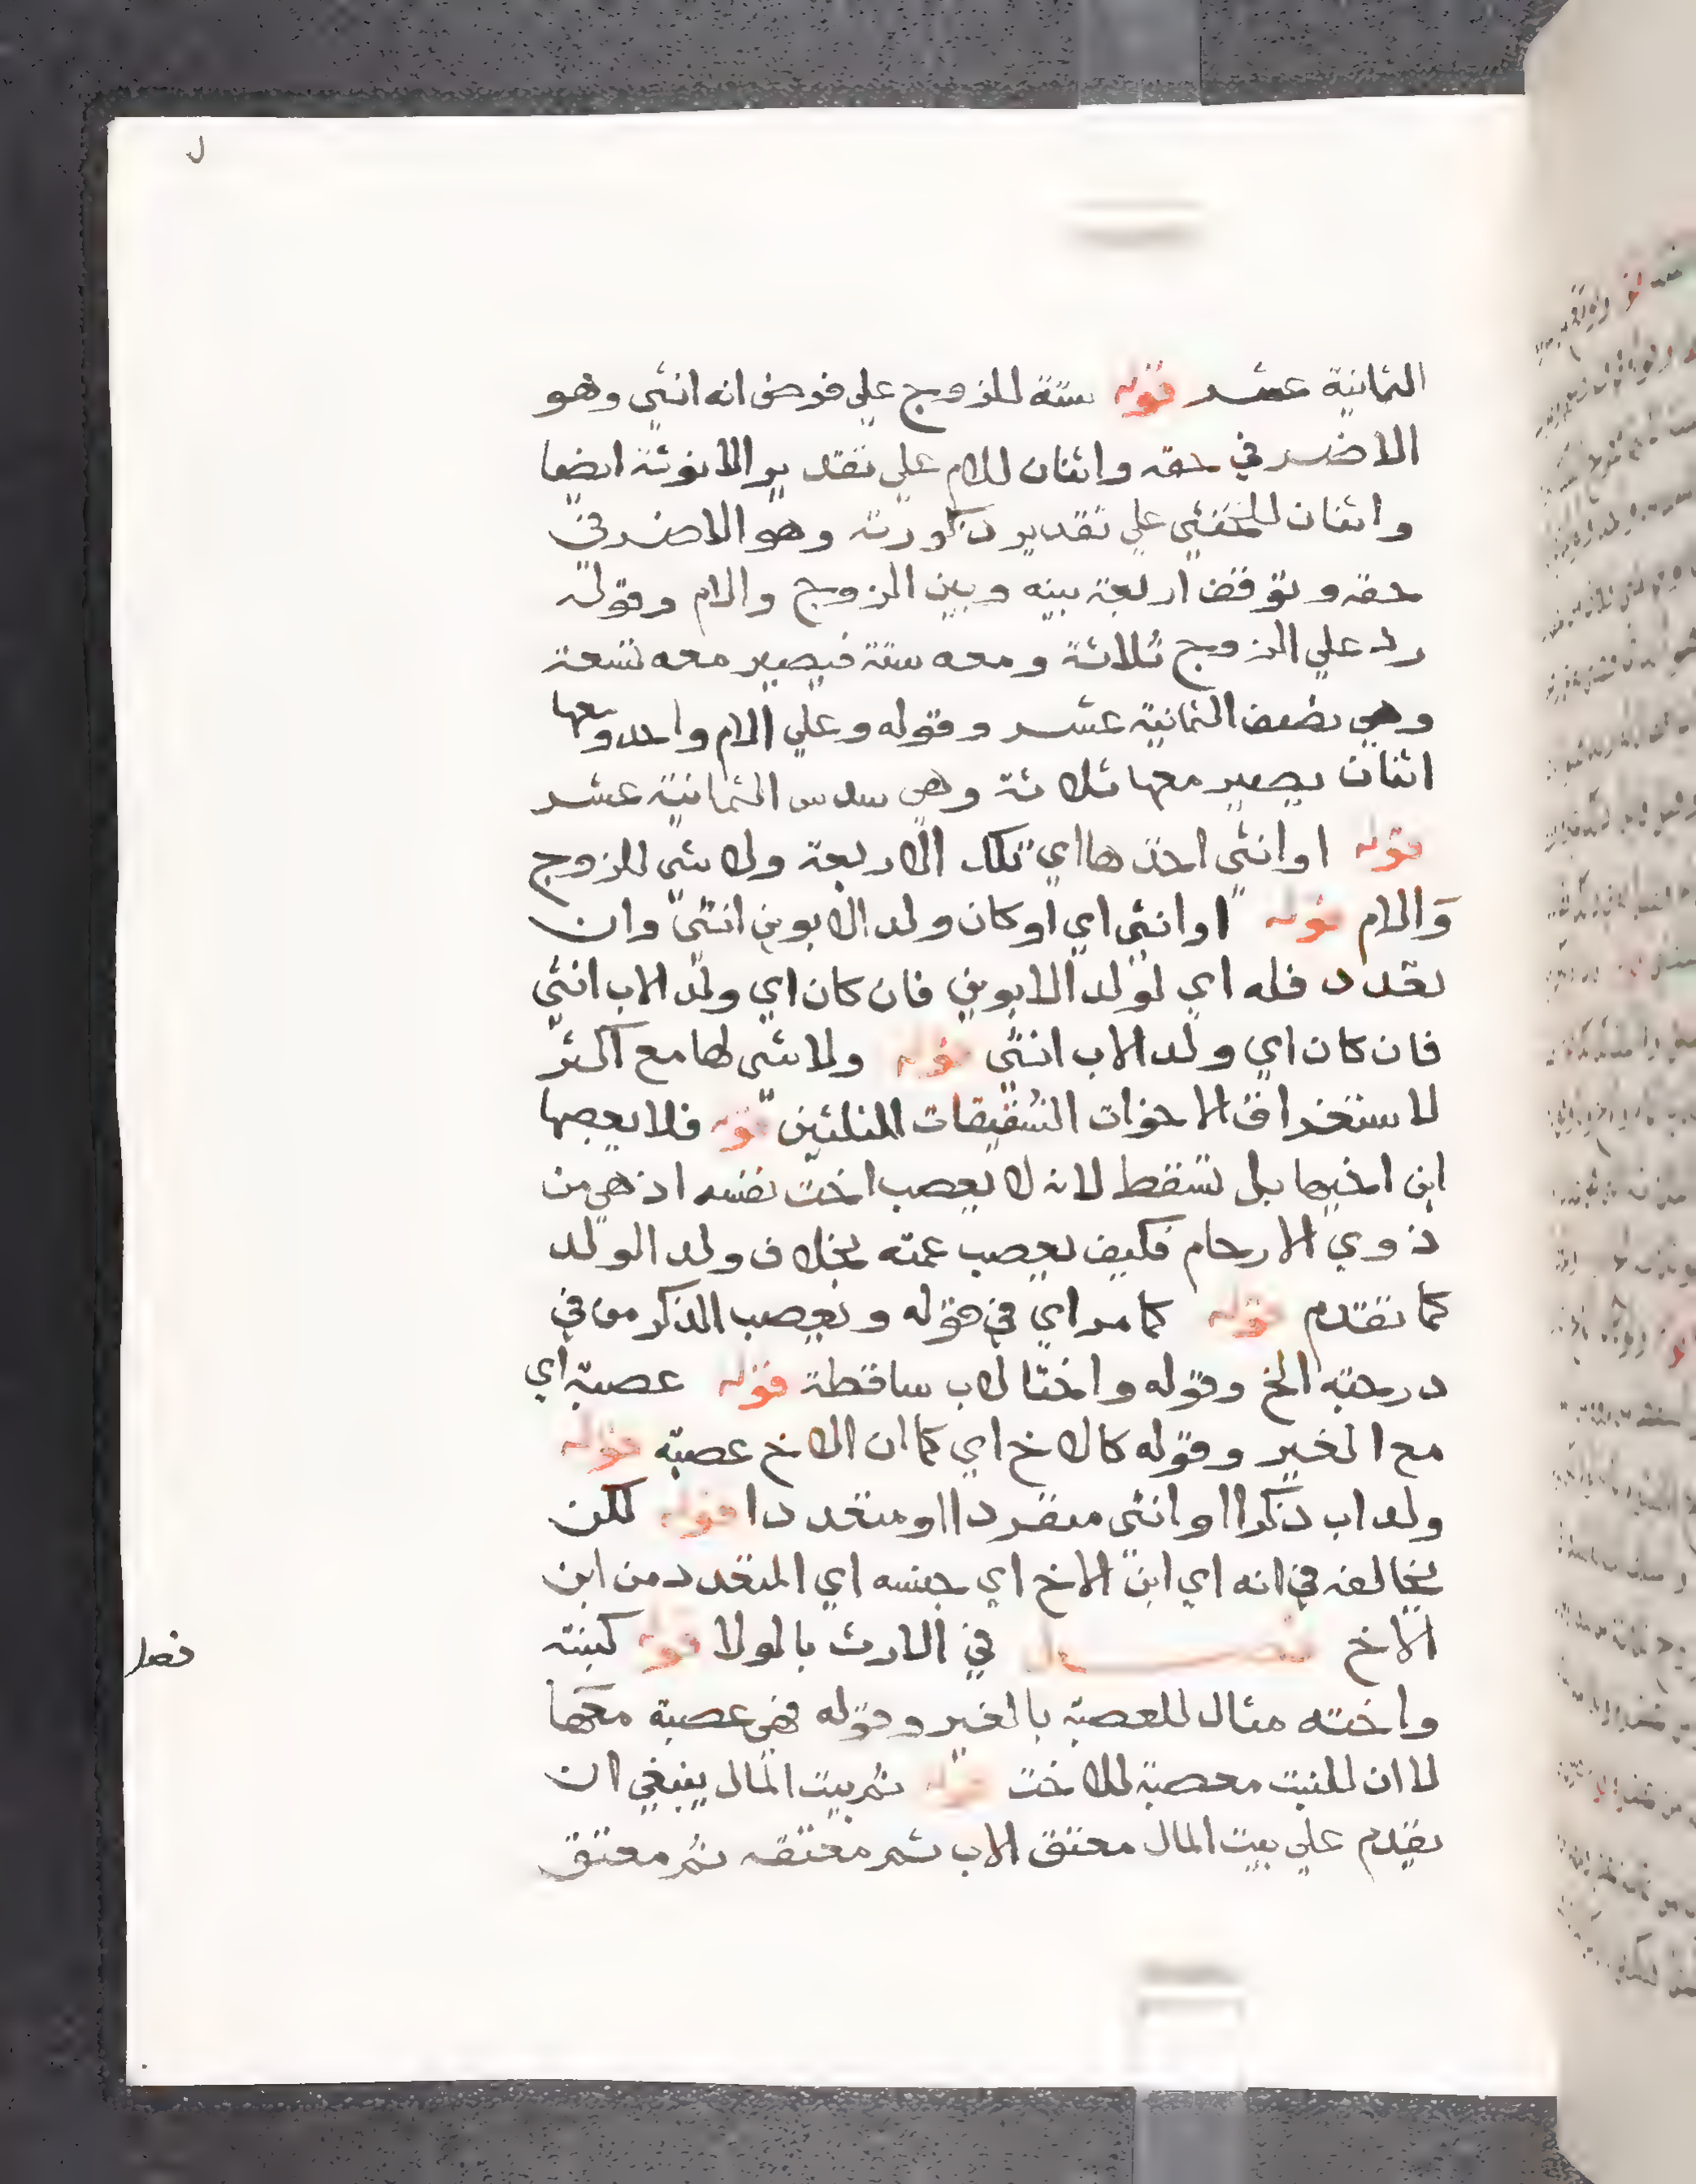 الثمانية عشر قوله ستة للزوج علي فرض انه انثي وهو
الاضر في حقه واثنان للام علي تقدير الانوثة ايضا
واثنان للخنثي علي تقدير ذكورته وهو الاضر في
حقه وتوقف اربعة بينه وبين الزوج والام وقوله
رد علي الزوج ثلاثة ومعه ستة فيصير معه تسعة
وهي نصف الثمانية عشر وقوله وعلي الام واحد ومعها
اثنان يصير معها ثلاثة وهي سدس الثمانية عشر
قوله او انثي اخذها اي تلك الاربعة ولا شي للزوج
والام قوله او انثي اي او كان ولد الابوين انثي وان
تعدد فله اي لولد الابوين فان كان اي ولد الاب انثي
فان كان اي ولد الاب انثي قوله ولا شي لها مع اكثر
لاستغراق الاخوات الشقيقات الثلثين قوله فلا يعصبها
ابن اخيها بل تسقط لانه لا يعصب اخت نفسه اذ هي من
ذوي الارحام فكيف يعصب عمته بخلاف ولد الولد
كما تقدم قوله كما مر اي في قوله ويعصب الذكر من في
درجته الخ وقوله واختا لاب ساقطة قوله عصبة اي
مع الغير وقوله كالاخ اي كما ان الاخ عصبة قوله
ولد اب ذكرا او انثي منفردا او متعددا قوله لكن
يخالفه في انه اي ابن الاخ اي جنسه اي المتعدد من ابن
الاخ فصل في الارث بالولا قوله كبنته
فصل
واخته مثال للعصبة بالغير وقوله فهي عصبة معها
لا ان للبنت معصبة للاخت قوله ثم بيت المال ينبغي ان
يقدم علي بيت المال معتق الاب ثم معتقه ثم معتق